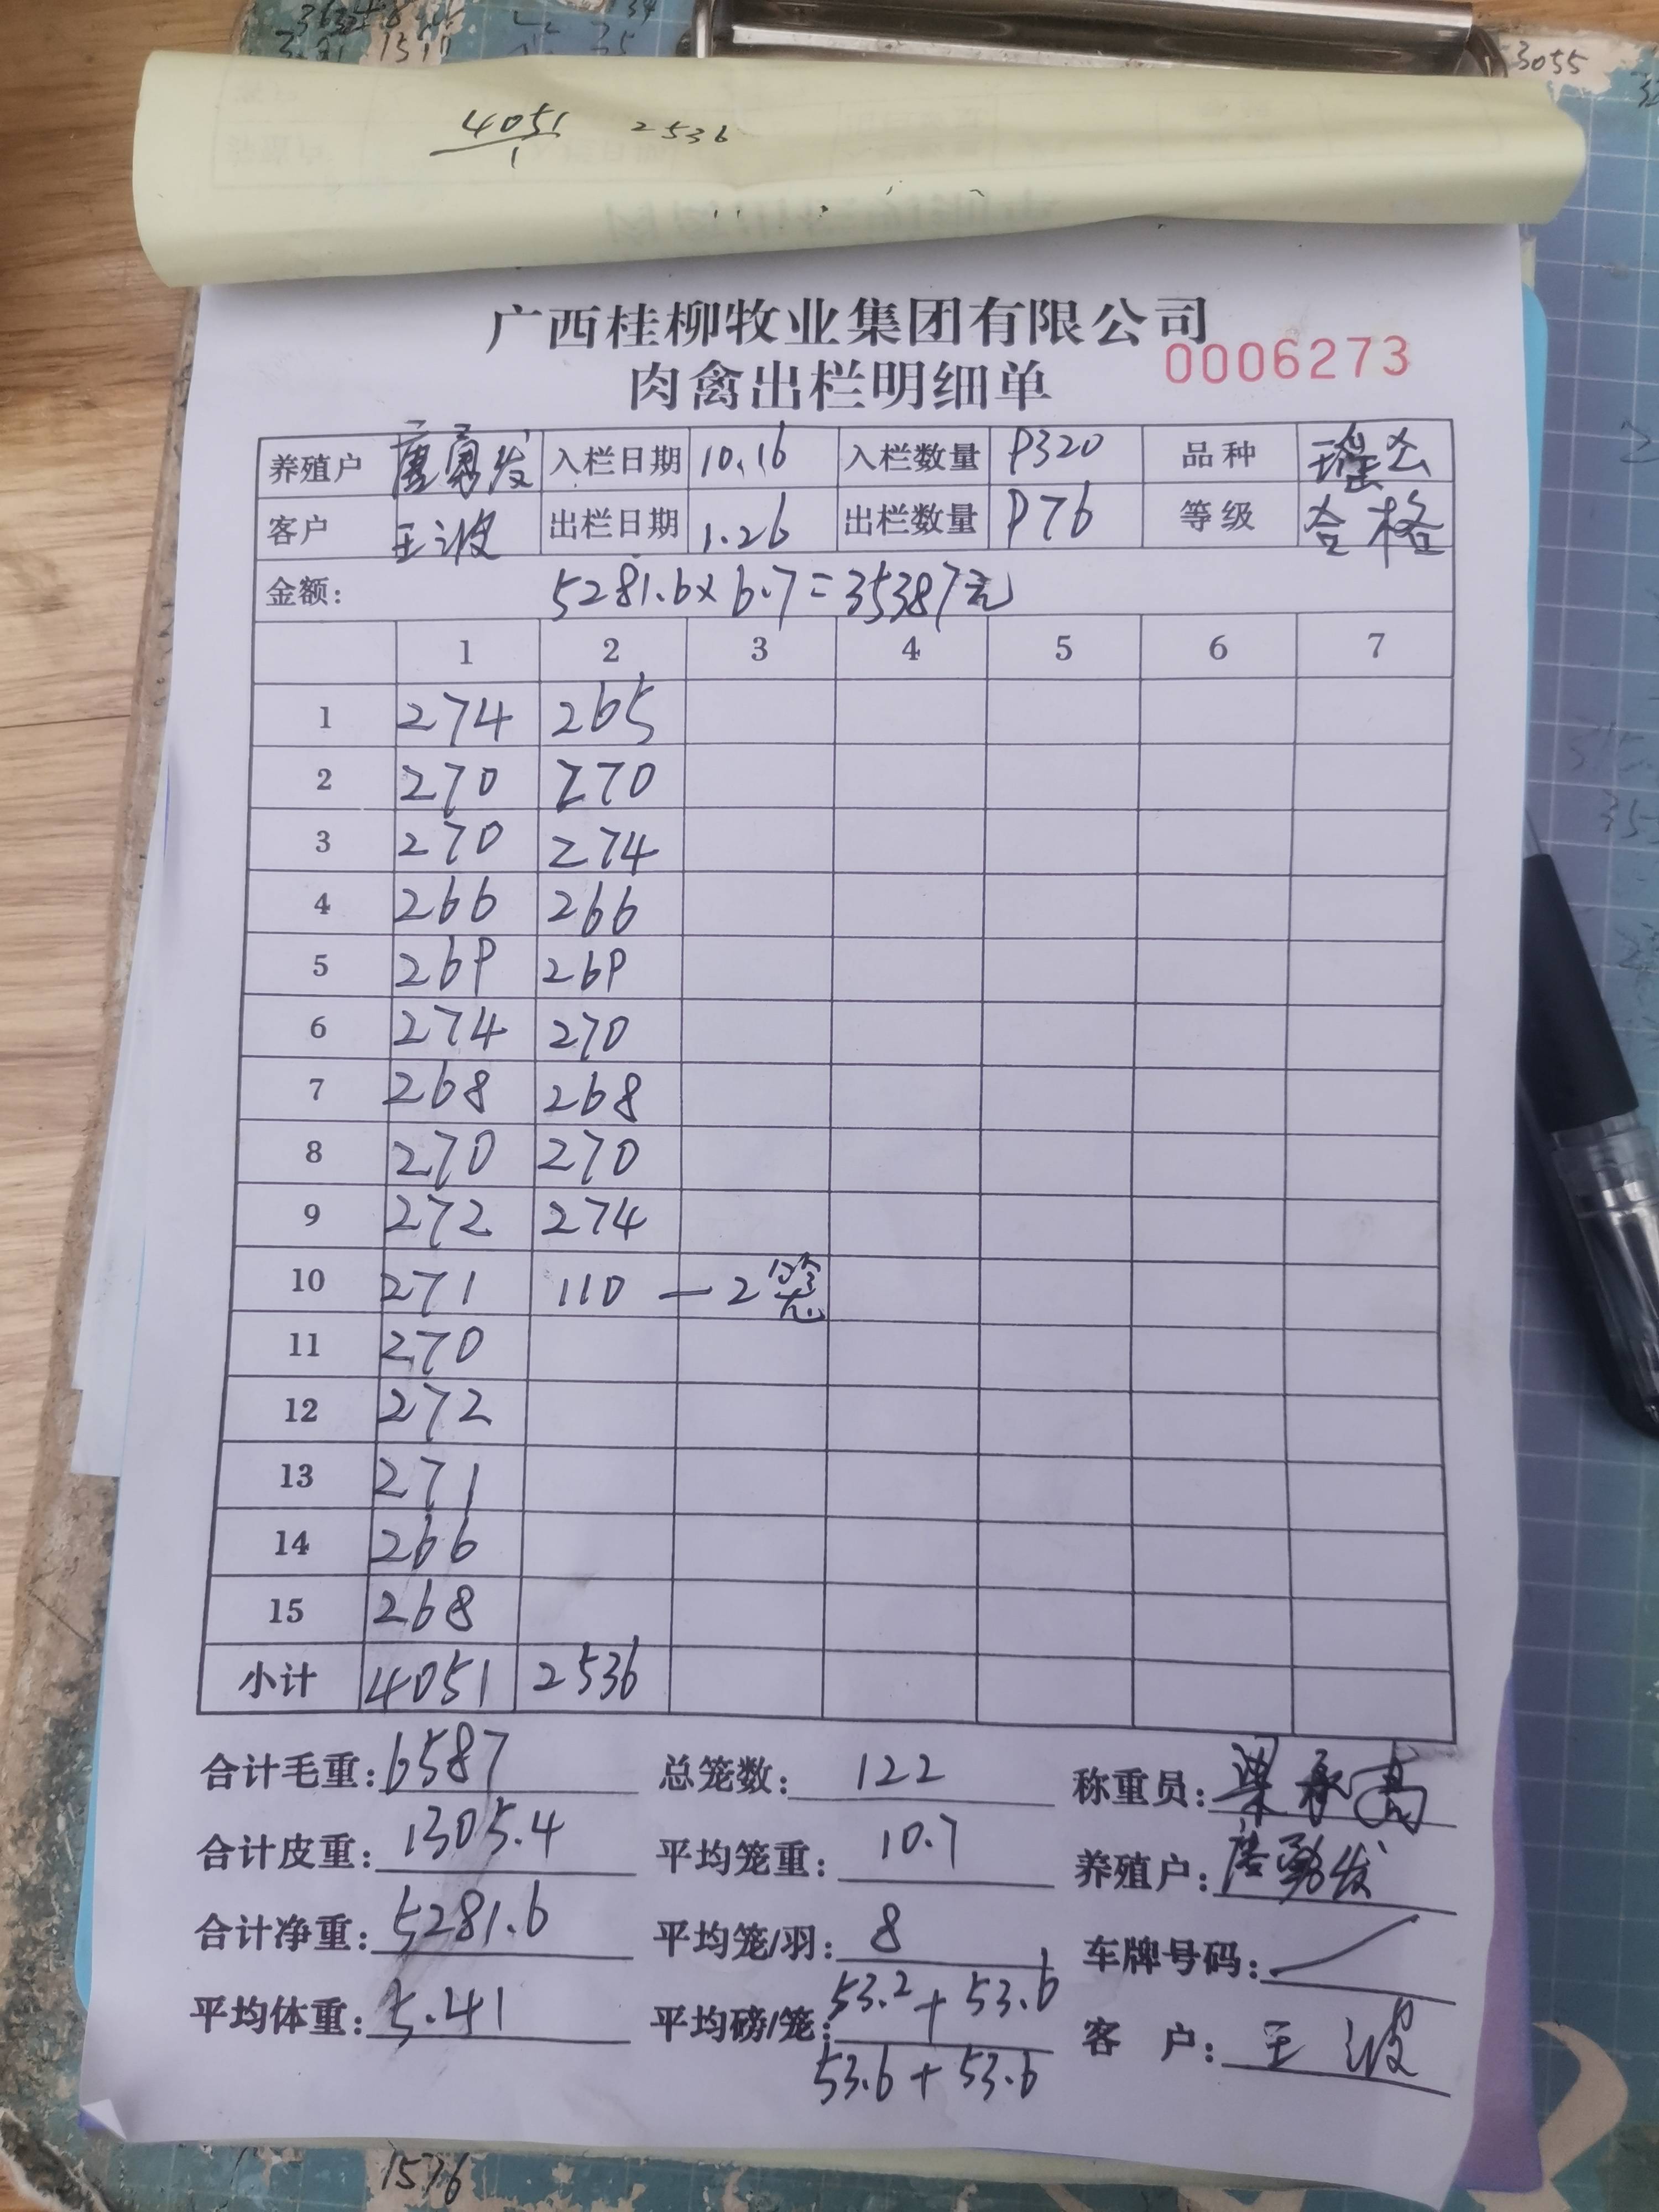 3055
4051 2536
1
广西桂柳牧业集团有限公司
肉禽出栏明细单 0006273
养殖户 唐勇发 入栏日期 10.16 入栏数量 9320 品种 瑶山
客户 王波 出栏日期 1.26 出栏数量 976 等级 合格
金额: 5281.6×6.7=35387元
1 2 3 4 5 6 7
1 274 265
2 270 270
3 270 274
4 266 266
5 269 269
6 274 270
7 268 268
8 270 270
9 272 274
10 271 110 — 2笼
11 270
12 272
13 271
14 266
15 268
小计 4051 2536
合计毛重: 6587 总笼数: 122 称重员:
合计皮重: 1305.4 平均笼重: 10.7 养殖户: 唐勇发
合计净重: 5281.6 平均笼/羽: 8 车牌号码:
平均体重: 5.41 平均磅/笼: 53.2+53.6 客 户: 王波
53.6+53.6
1576